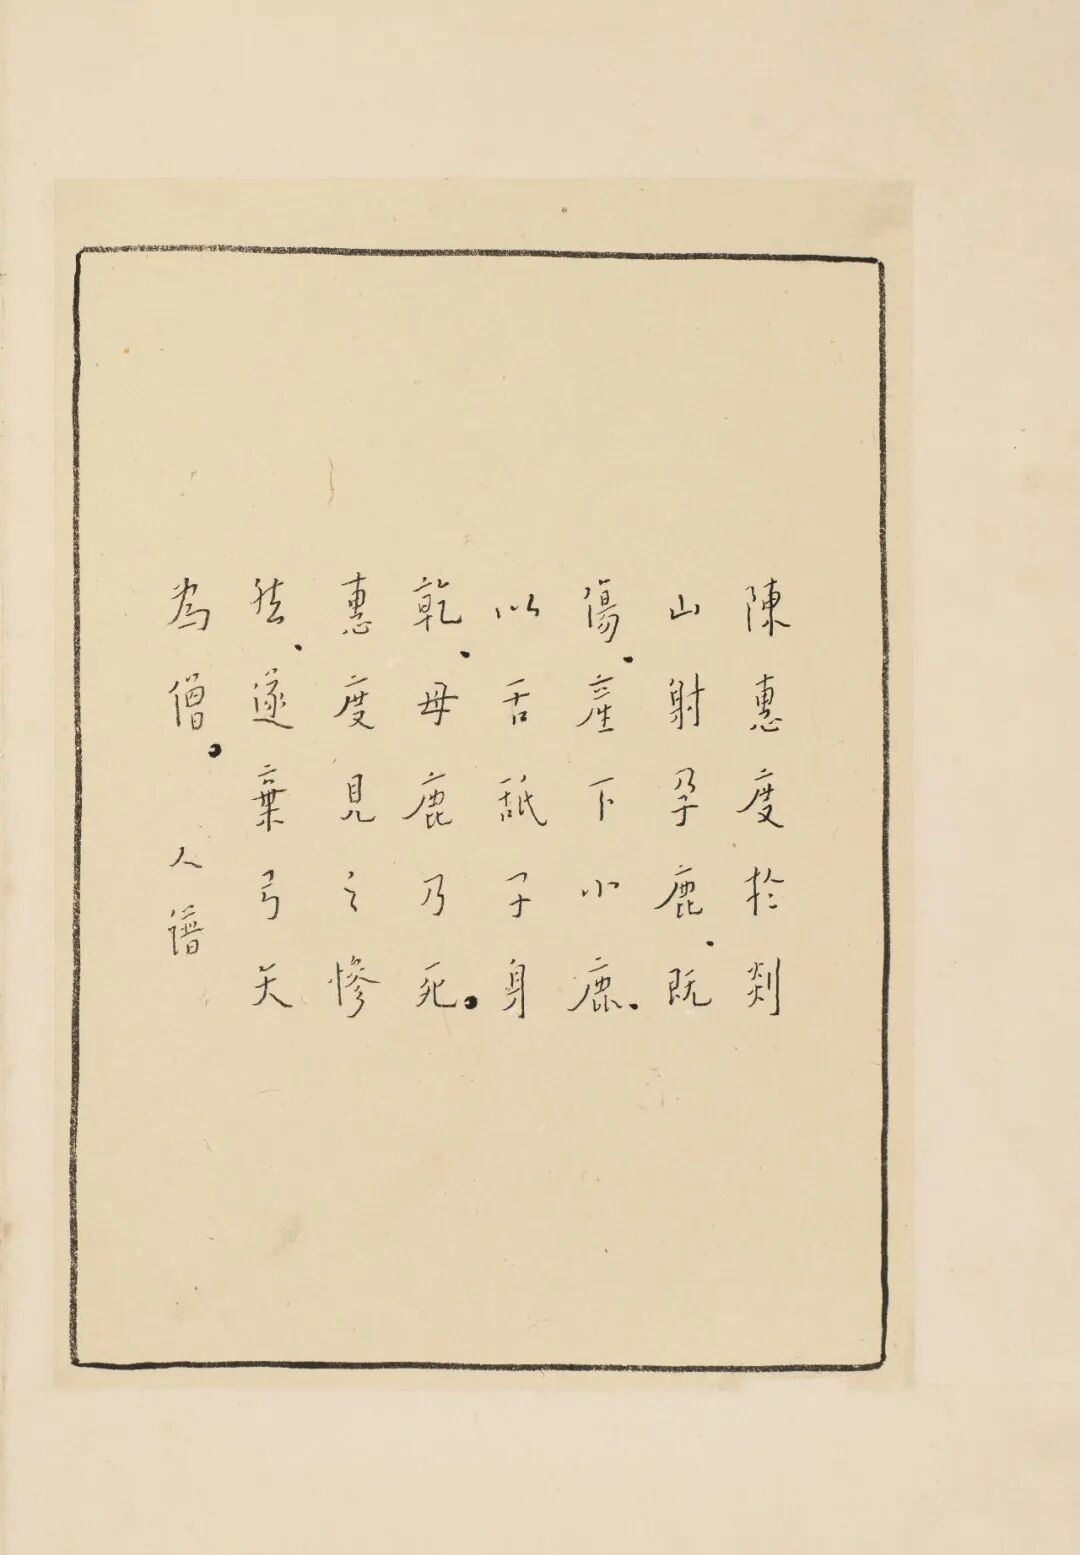 陳惠度於剡
山射孕鹿、既
傷、產下小鹿、
以舌舐子身
乾、母鹿乃死。
惠度見之慘
然、遂棄弓矢
為僧。 人譜